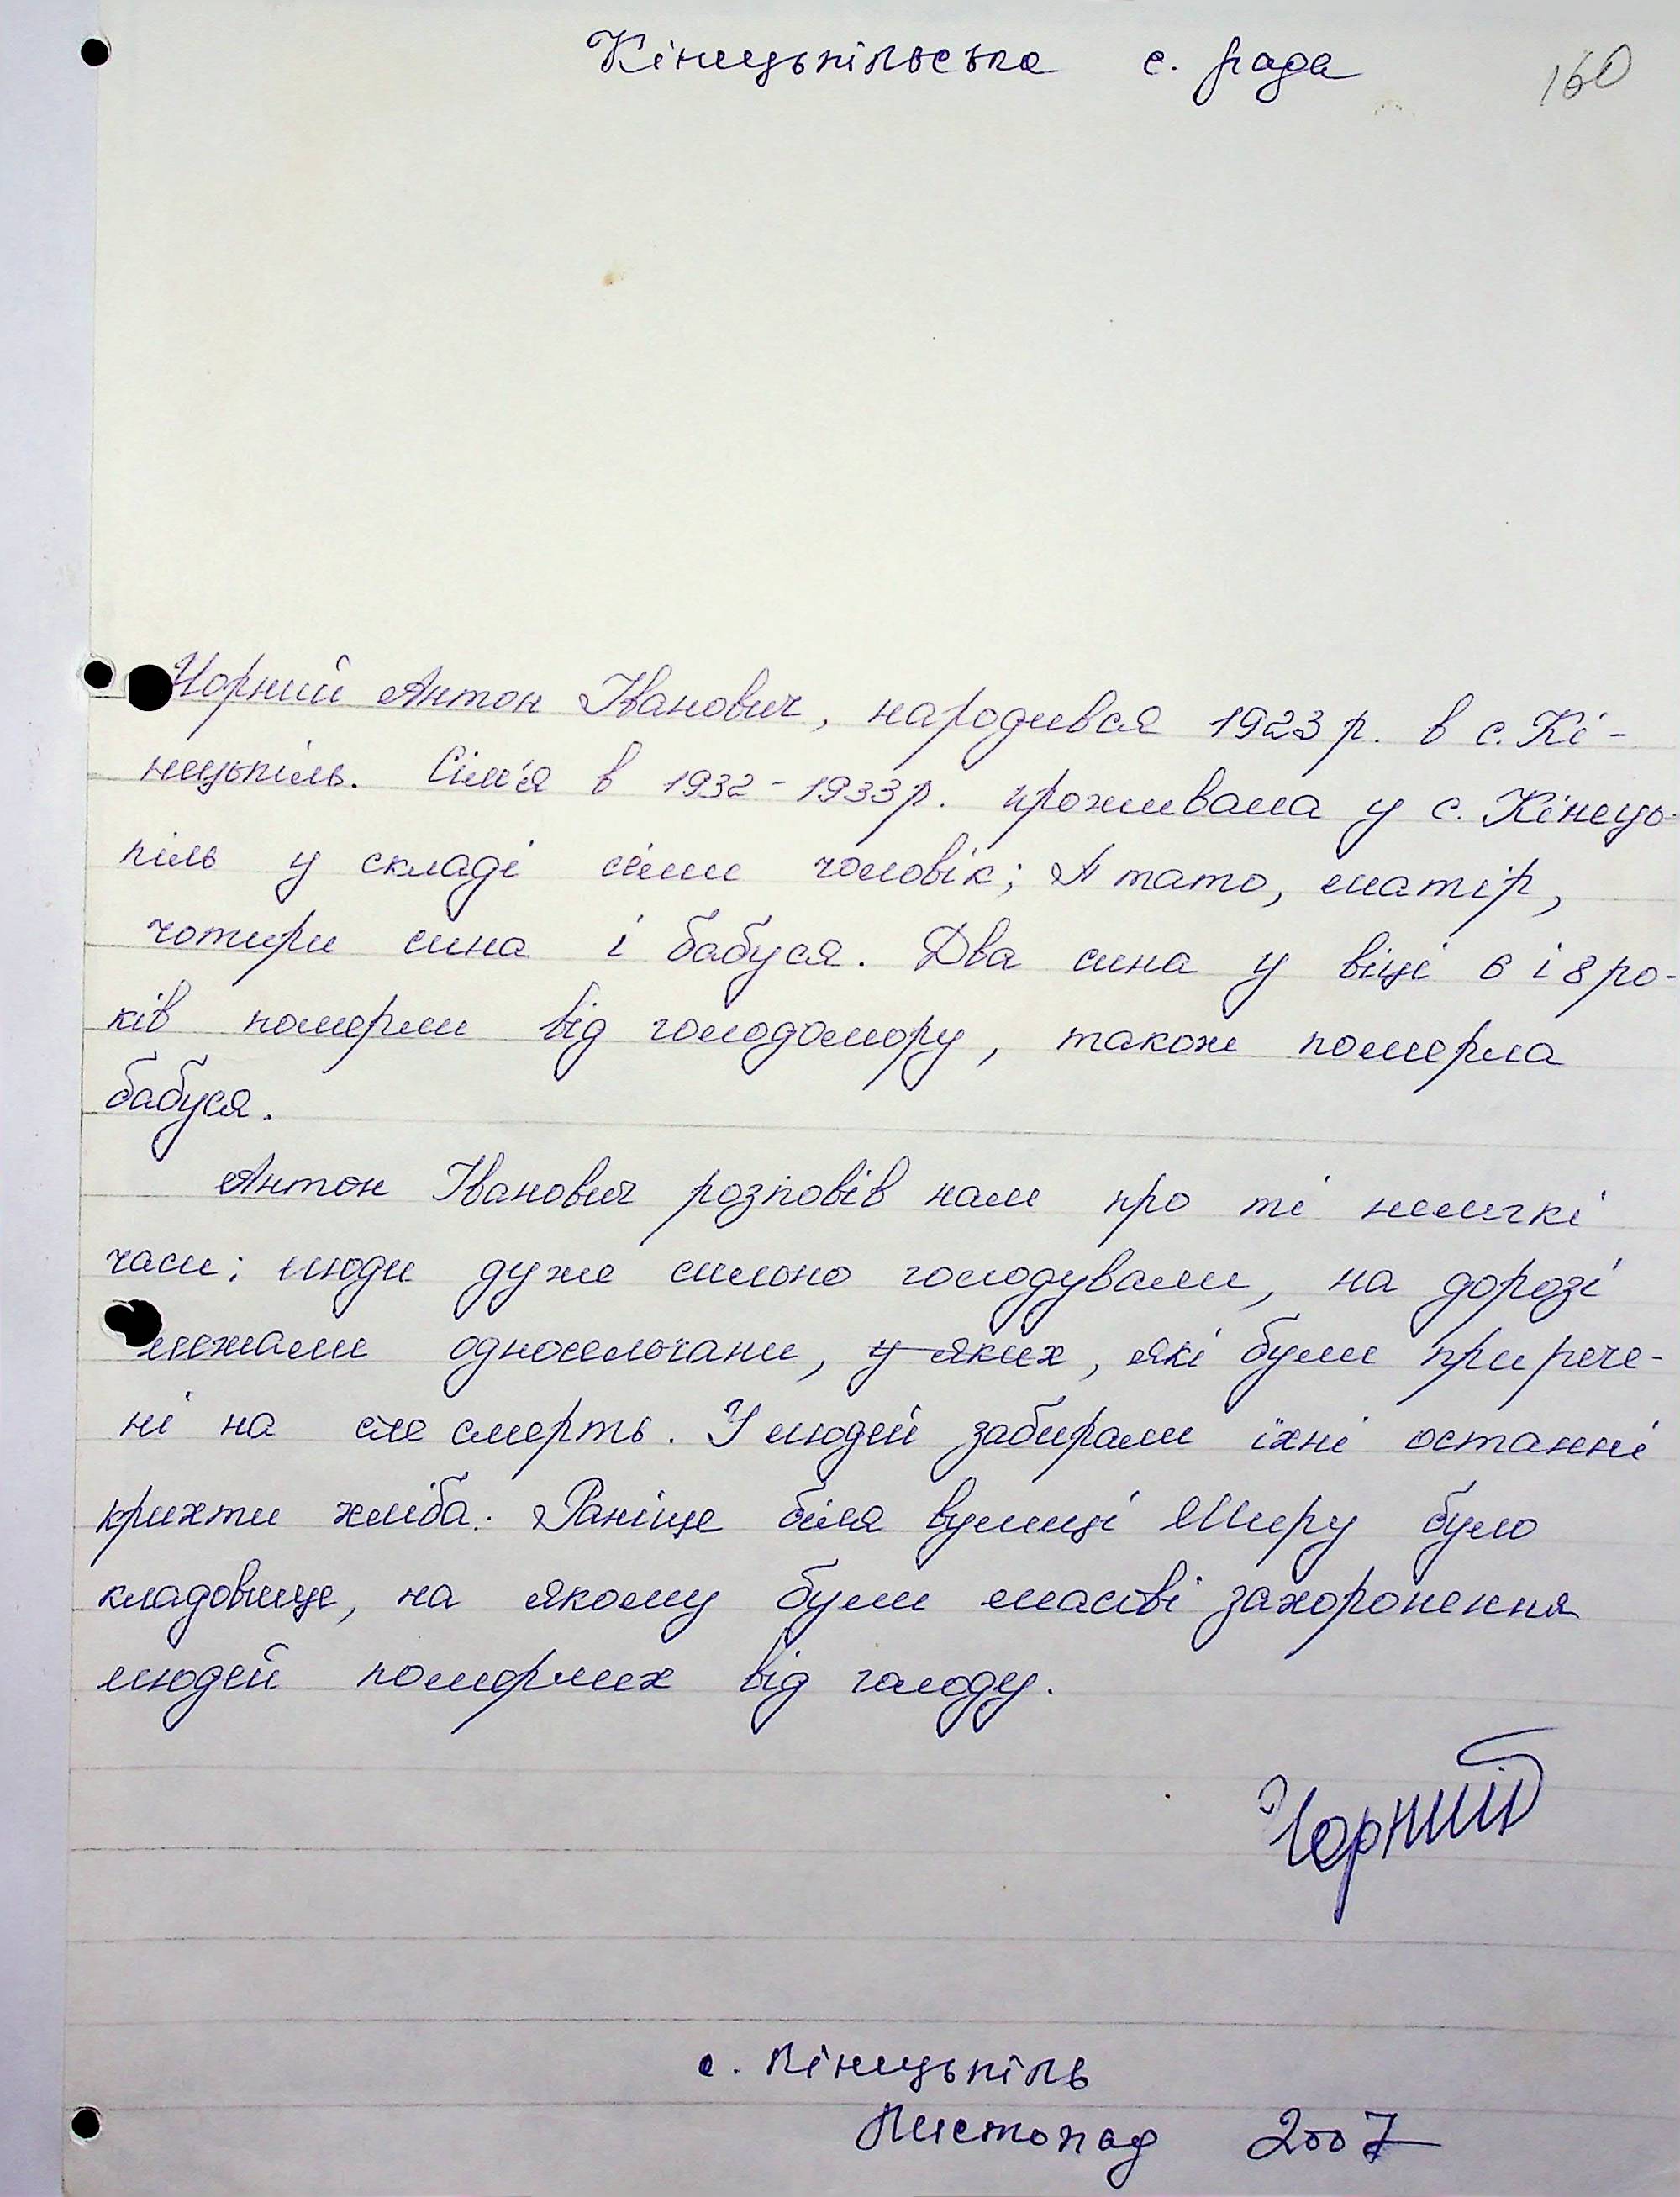 Кінецьпільська с. рада
160
Чорний Антон Іванович, народився 1923 р. в с. Кі-
нецьпіль. Сім'я в 1932-1933 р. проживала у с. Кінець-
піль у складі семи чоловік; тато, матір,
чотири сина і бабуся. Два сина у віці 6 і 8 ро-
ків померли від голодомору, також померла
бабуся.
Антон Іванович розповів нам про ті нелегкі
часи: люди дуже сильно голодували, на дорозі
лежали односельчани, у яких, які були прирече-
ні на смерть. У людей забирали їхні останні
крихти хліба. Раніще біля вулиці Миру було
кладовище, на якому були масові захоронення
людей померлих від голоду.
Чорний
с. Кінецьпіль
Листопад 2007